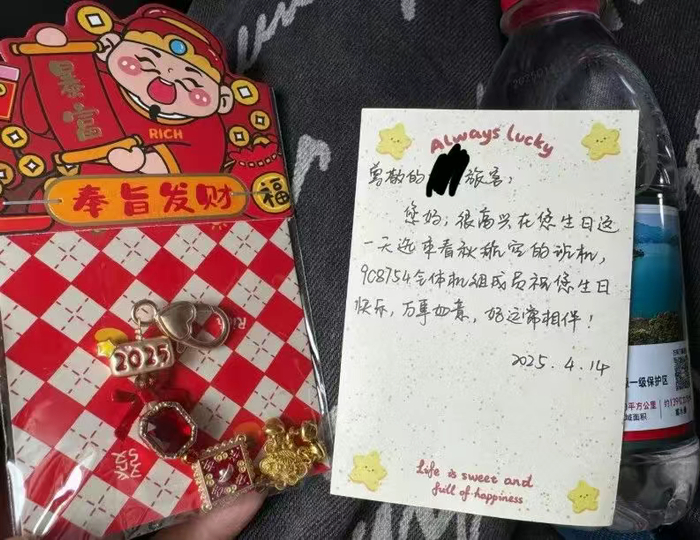 暴富
RICH
奉旨发财
福
2025
发
Always lucky
尊敬的 旅客:
您好,很高兴在您生日这
一天选乘春秋航空的航机,
9C8754全体机组成员祝您生日
快乐,万事如意,好运常相伴!
2025.4.14
Life is sweet and
full of happiness
一级保护区
平方公里
域面积